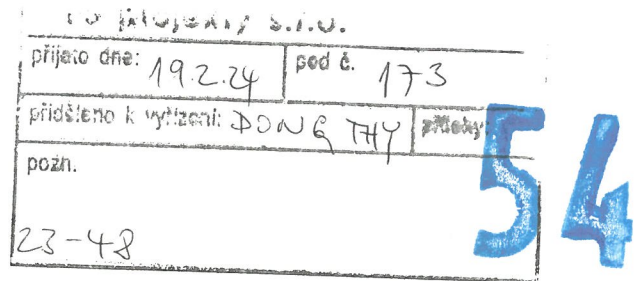 projekty s.r.o.
přijato dne: 19.2.24 pod č. 173
přiděleno k vyřízení: DONG THY přílohy:
pozn.
54
23-48